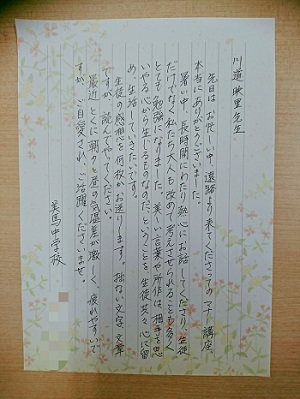 川道映里先生
先日はお忙しい中、遠路より来てくださってのマナー講座、
本当にありがとうございました。
暑い中、長時間にわたり熱心にお話してくださり、生徒
だけでなく私たち大人も改めて考えさせられることも多く
とても勉強になりました。美しい言葉や所作は、相手を思
いやる心から生じるものなのだということを、生徒共々心に留
め、生活していきたいです。
生徒の感想を何枚かお送りします。拙ない文字、文章
ですが、読んでやってください。
最近とくに朝夕と昼の気温差が激しく、疲れやすいで
すが、ご自愛され、ご活躍くださいませ。
美馬中学校